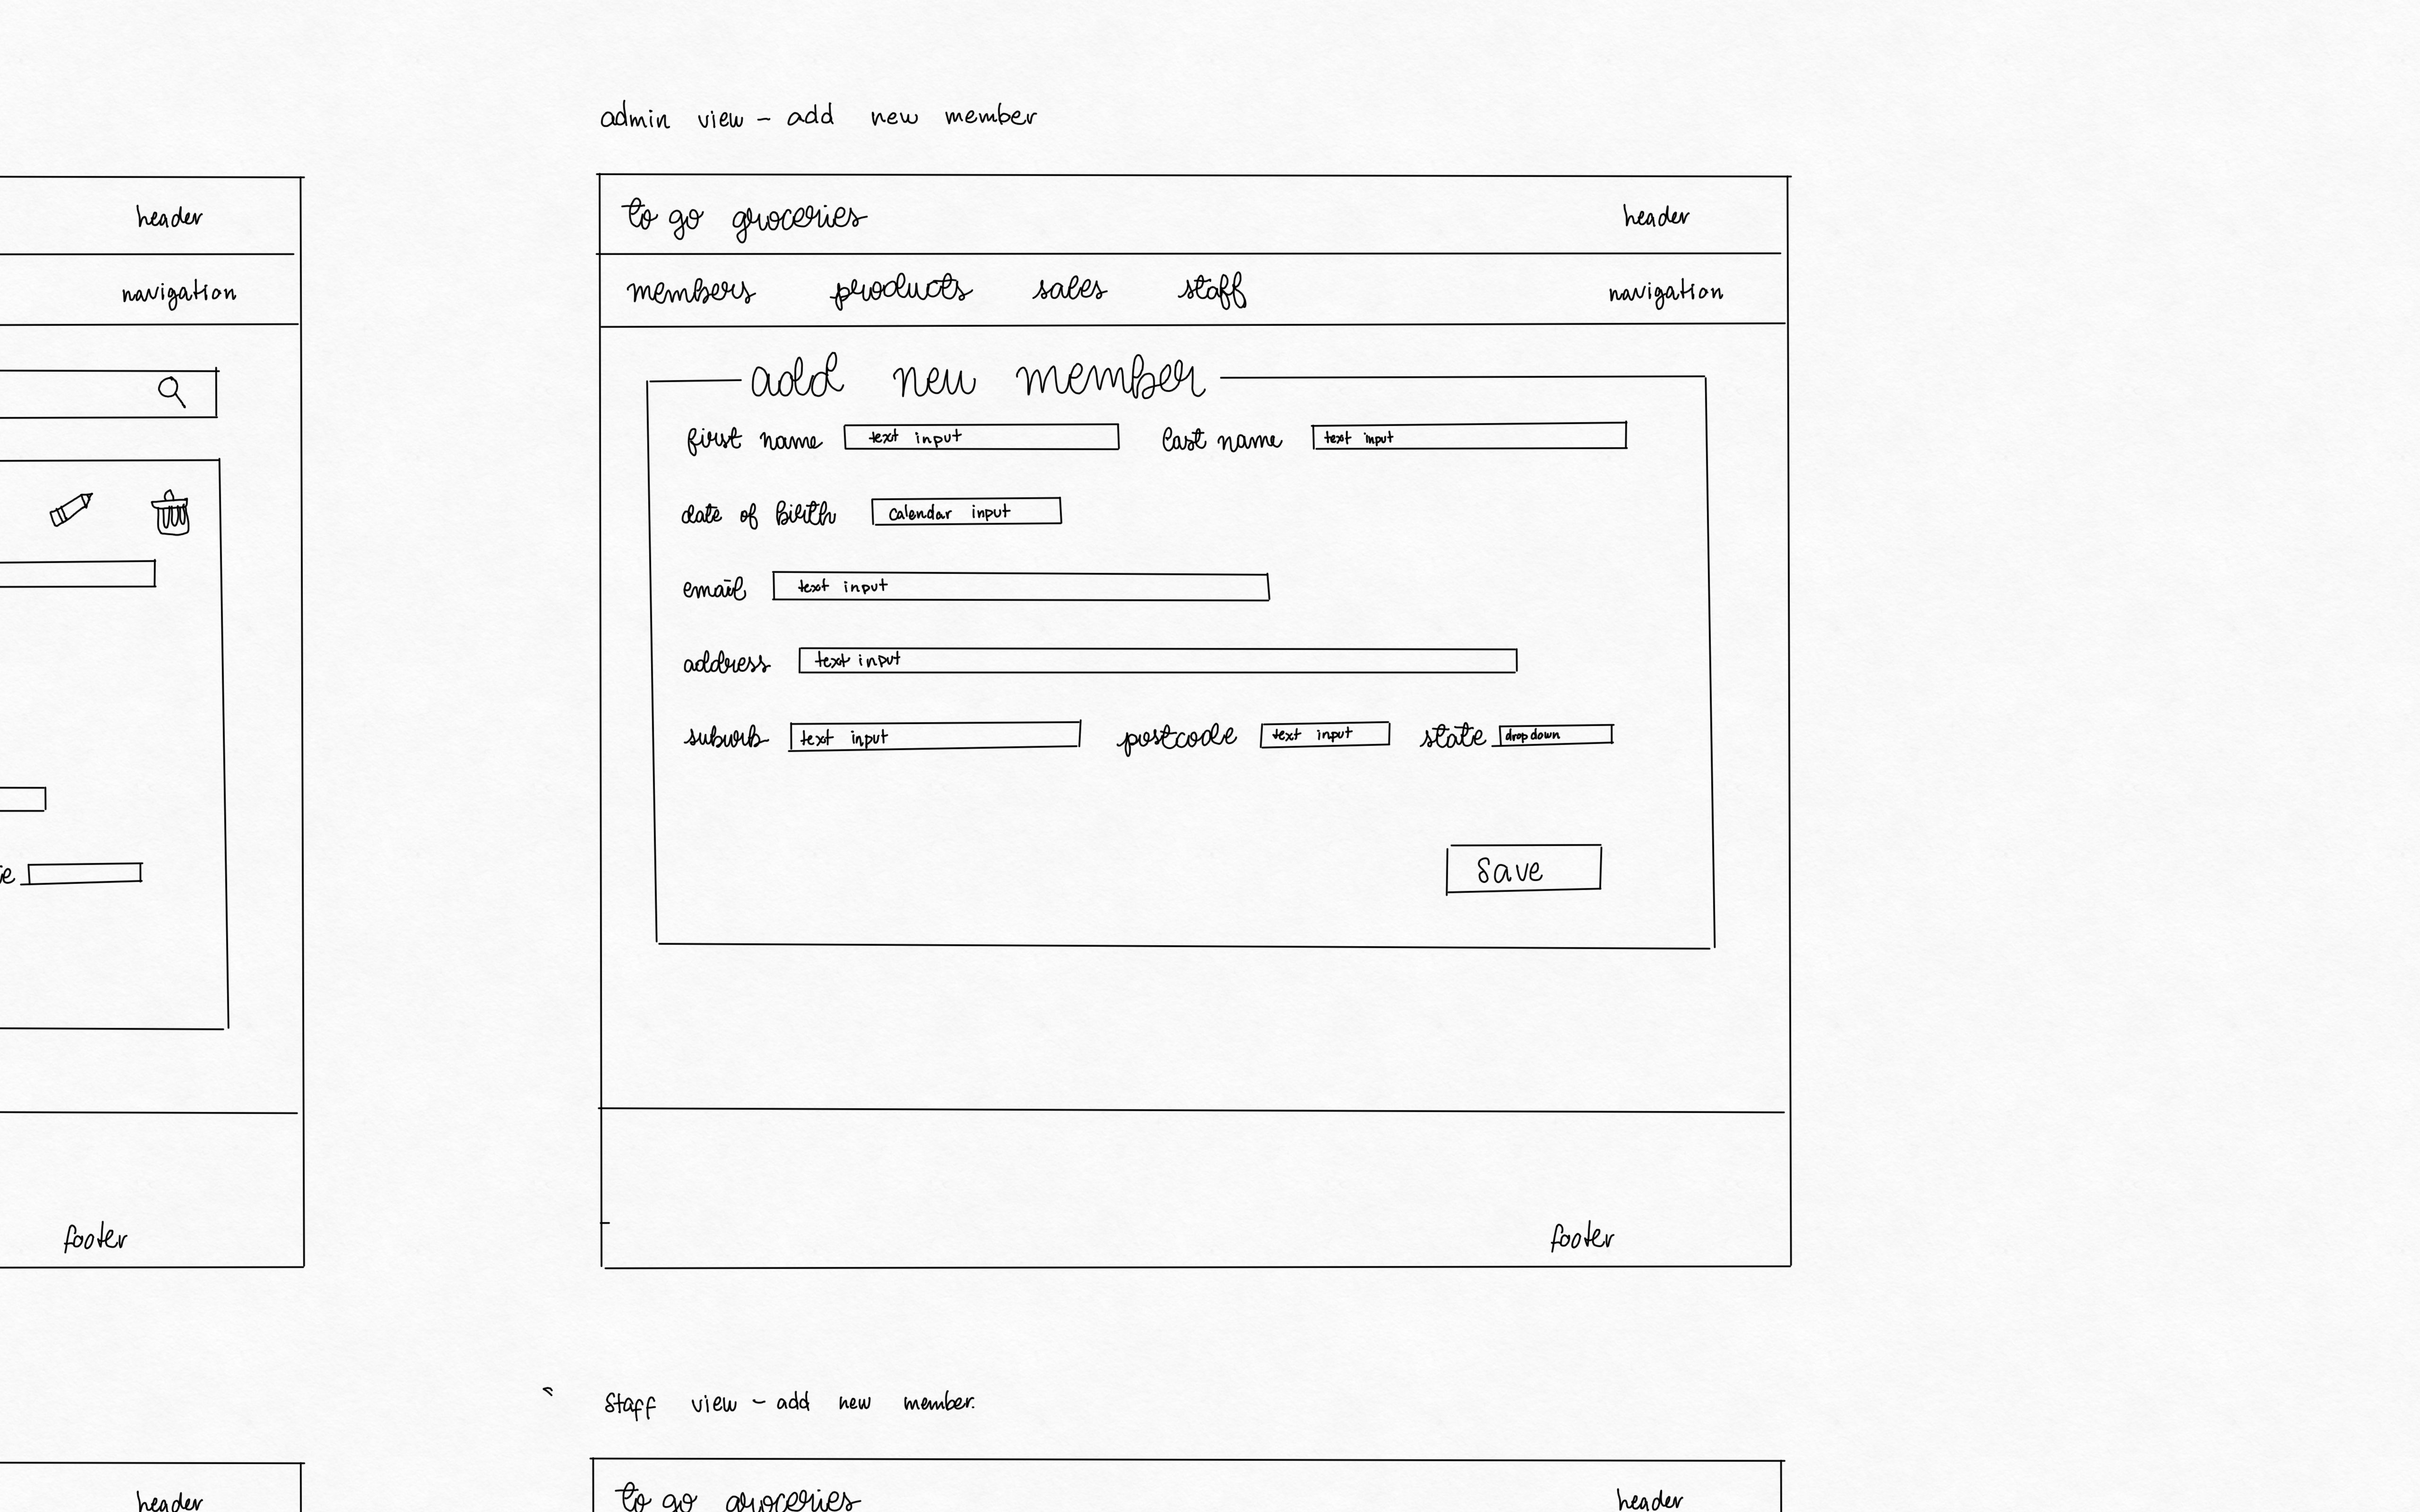 admin view - add new member
header
navigation
e
footer
header
to go groceries header
members products sales staff navigation
add new member
first name text input last name text input
date of birth calendar input
email text input
address text input
suburb text input postcode text input state drop down
Save
footer
Staff view - add new member.
to go groceries header